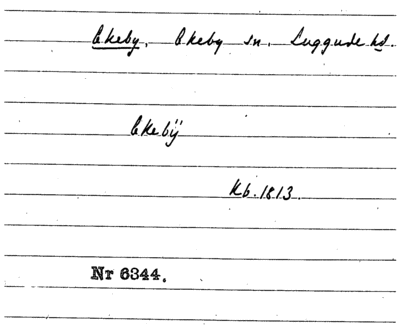 Ekeby. Ekeby sn. Luggude hd.
Ekebÿ
Kb. 1813.
Nr 6344.